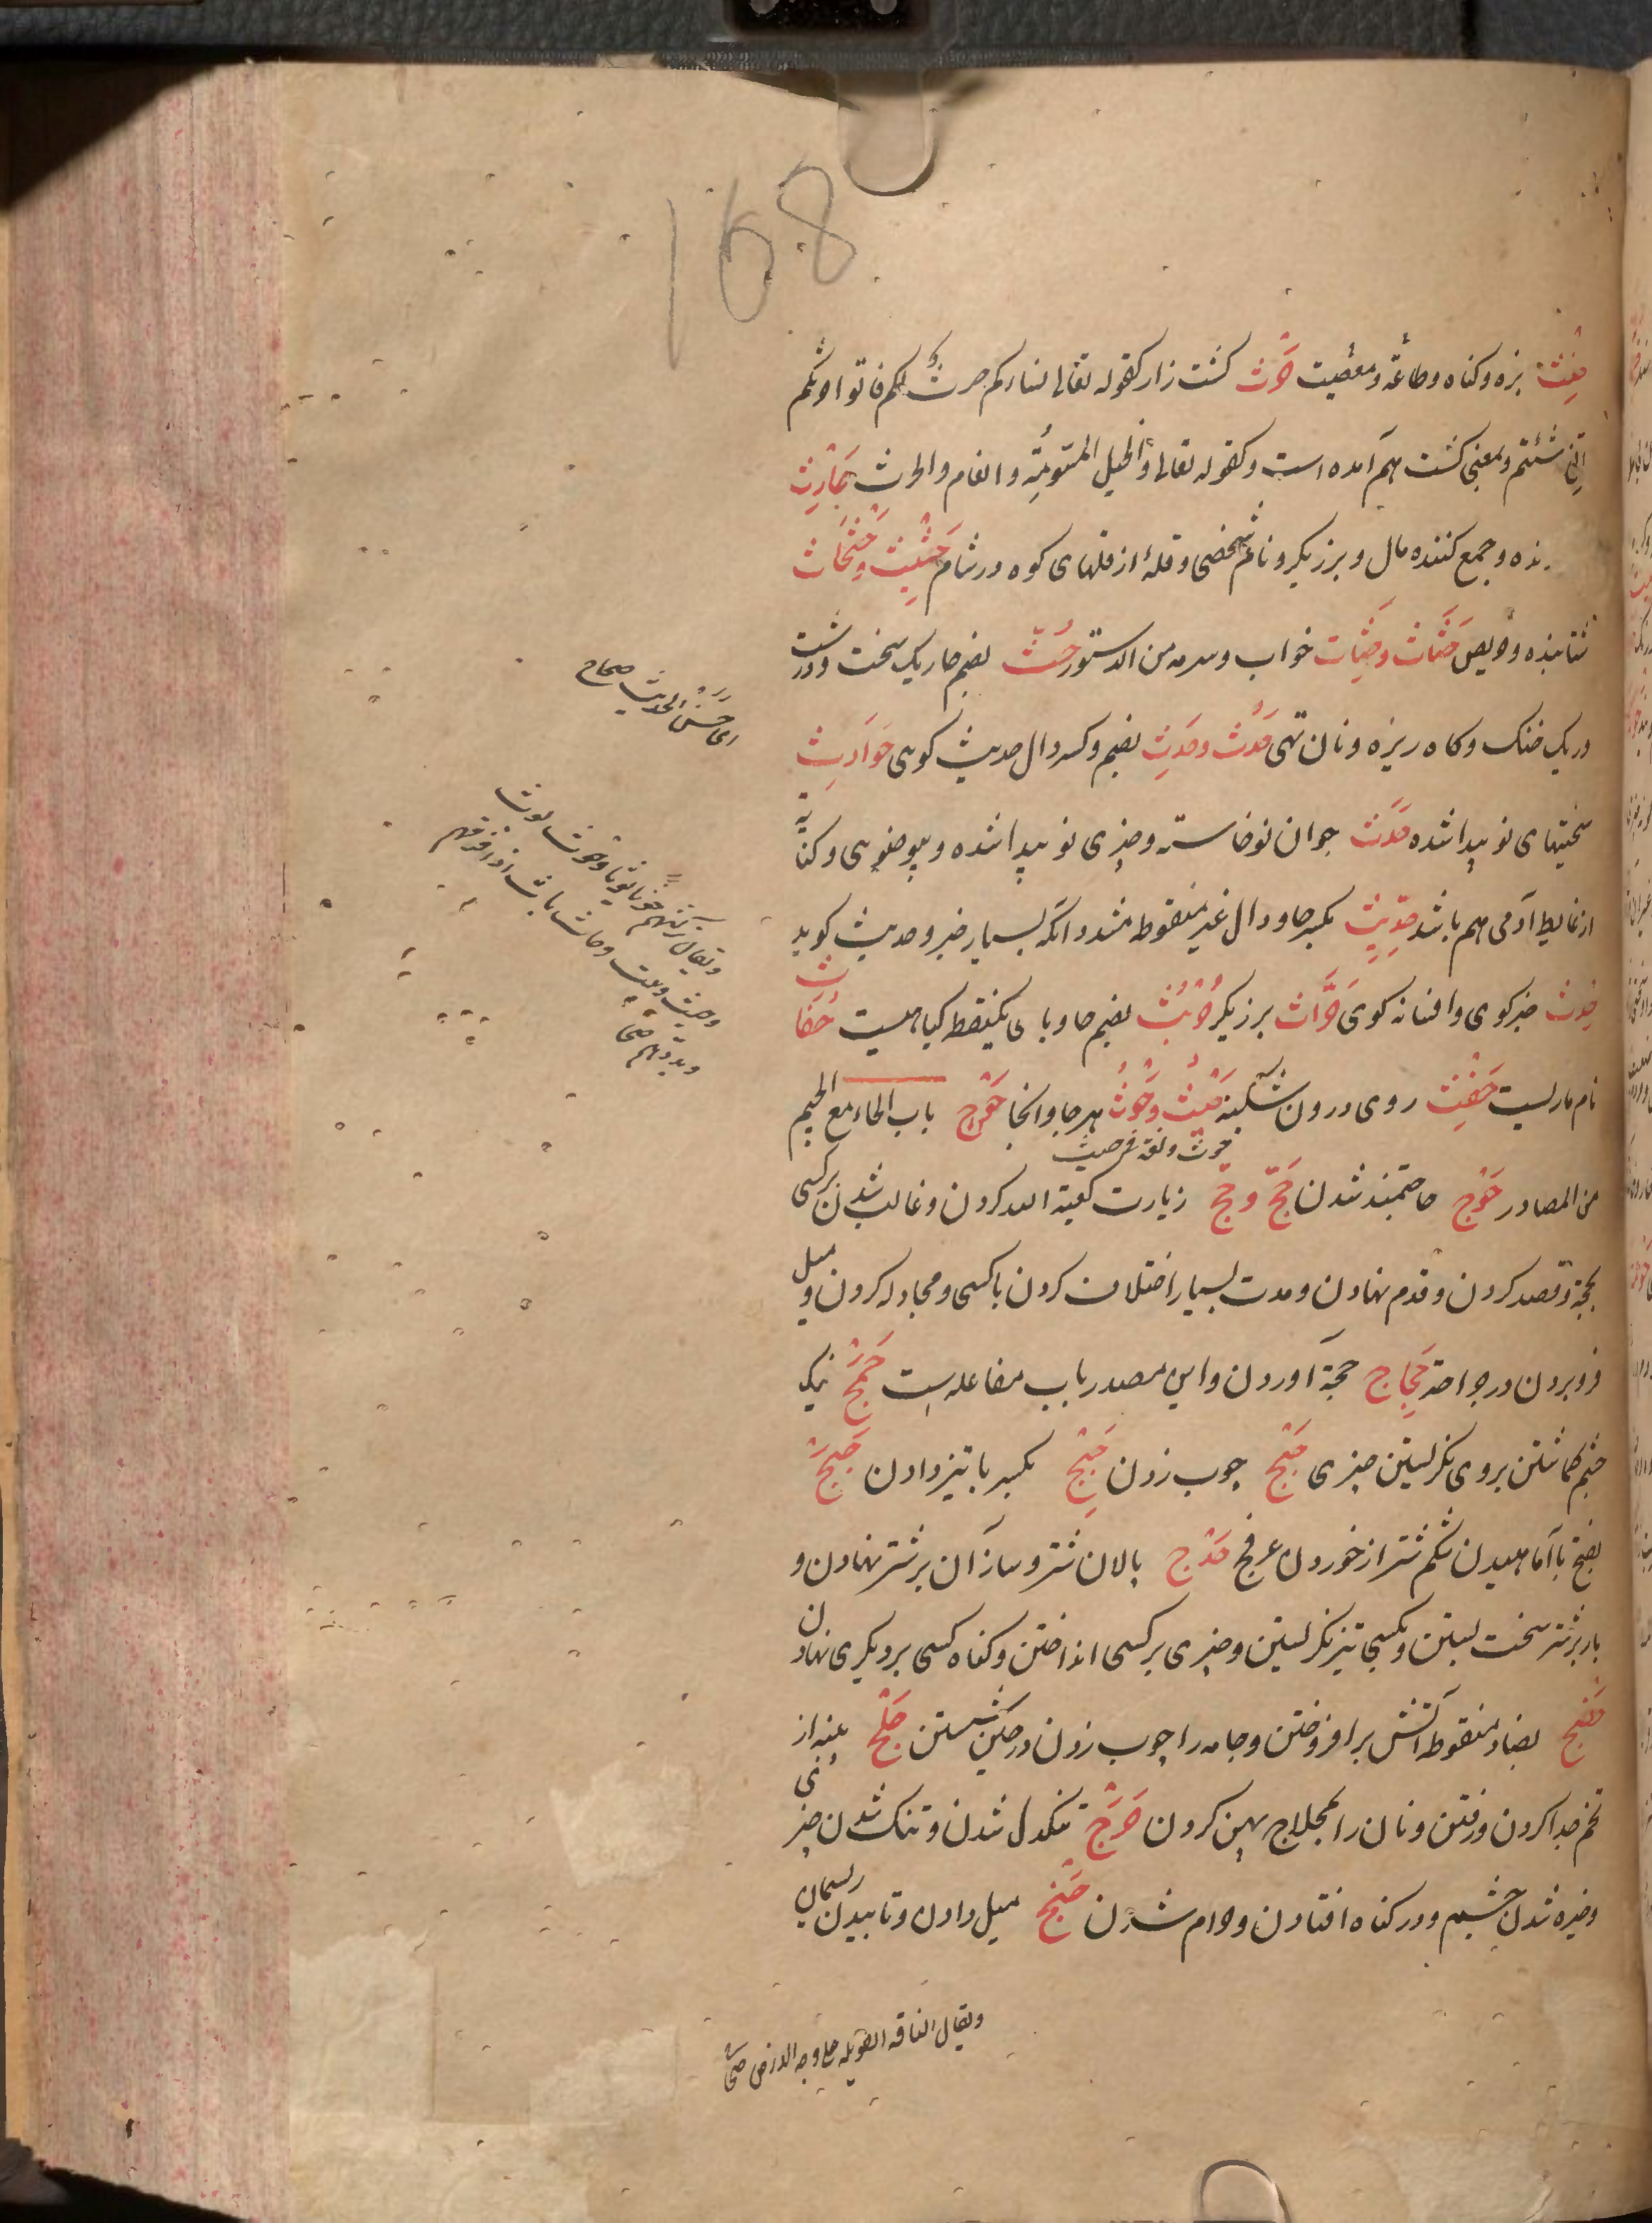 168
حِنْث بزه و کناه و طاعة و معصیت حَرْث کشت زار کقوله تعالی نساءکم حرث لکم فاتوا حرثکم
انی شئتم و بمعنی کشت هم آمده است و کقوله تعالی والخیل المسومة والانعام والحرث حَارِث
رنده و جمع کننده مال و برزیکر و نام شخصی و قلهٔ از قلهای کوه در شام حَثِیْث و حَثْحَاث
شتابنده و حریص حَثَاث و حِثَاث خواب و سرمه من الدستور حُثّ بضم حا ریک سخت و درشت
و ریک خنک و کاه ریزه و نان تهی حَدُث و حَدِث بضم و کسر دال حدیث کوی حَوَادِث
سختیهای نو پیدا شده حَدَث جوان نوخاسته و چیزی نو پیدا شده و بیوضویی و کنایة
از غایط آدمی هم باشد حِدِّیْث بکسر حا و دال غیر منقوطه مشدد آنکه بسیار خبر و حدیث کوید
حِدْث خبرکوی و افسانه کوی حَرَّاث برزیکر حُرْبُث بضم حا و بای یکنقطه کیاهیست حُفَاث
نام ماریست حَفِث روی درون شکنبه حَیْثُ و حَوْثُ هرجا و آنجا حَوْج باب الحاء مع الجیم
حوث و لغة فی حیث
من المصادر حَوْج حاجتمند شدن حَجّ و حِجّ زیارت کعبة الله کردن و غالب شدن بر کسی
بحجة و قصد کردن و قدم نهادن و مدت بسیار اختلاف کردن با کسی و مجادله کردن و میل
فرو بردن در جراحة حِجَاج حجة آوردن و این مصدر باب مفاعله است حَمْج نیک
چشم کماشتن بروی نکریستن چیزی حَبْج چوب زدن حَبِج بکسر با تیز دادن حَبَج
بفتح با آماهیدن شکم شتر از خوردن عرفج حَدْج پالان شتر و ساز آن بر شتر نهادن و
بار بر شتر سخت بستن و بکسی تیز نکریستن و چیزی بر کسی انداختن و کناه کسی بر دیکری نهادن
حَضْج بضاد منقوطه آتش برافروختن و جامه را چوب زدن در حین شستن حَلْج پنبه از
تخم جدا کردن و رفتن و نان را بمحلاج پهن کردن حَرَج تنکدل شدن و تنک شدن چیزی
و خیره شدن چشم و در کناه افتادن و حرام شدن حَنْج میل دادن و تابیدن ریسمان
ای حسن الحدیث صحاح
ویقال ترکتهم حوثا بوثا و حوث بوث
وحیث بیث وحاث باث اذا فرقهم
وبددهم صحا
ویقال الناقه الطویلة علی وجه الارض صحا